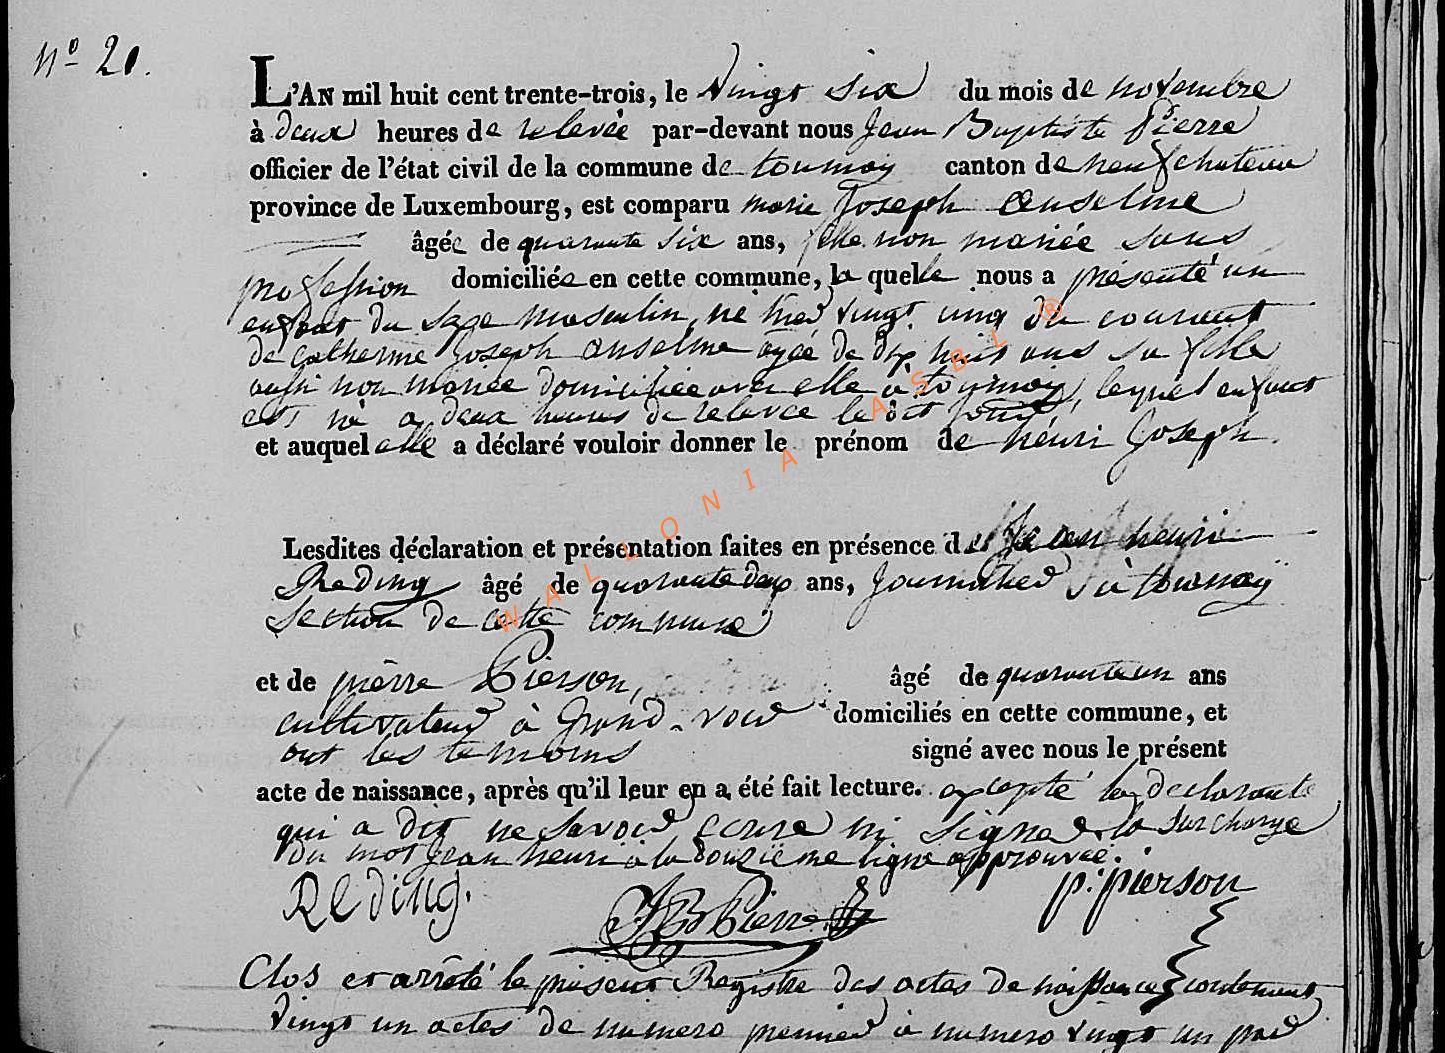 N° 21.
L'AN mil huit cent trente-trois, le vingt six du mois de novembre
à deux heures de relevée par-devant nous Jean Baptiste Pierre
officier de l'état civil de la commune de tournay canton de neufchateau
province de Luxembourg, est comparu marie Joseph Anselme
âgée de quarante six ans, fille non mariée sans
profession domiciliée en cette commune, la quelle nous a présenté un
enfant du sexe masculin, né hier vingt cinq du courant
de Catherine Joseph Anselme agée de dix huit ans sa fille
aussi non mariée domiciliée avec elle à tournay, lequel enfant
est né a deux heures de relevée le dit jour,
et auquel elle a déclaré vouloir donner le prénom de hénri Joseph
Lesdites déclaration et présentation faites en présence de Jean henri
Reding âgé de quarante deux ans, Journalier à tournay
Section de cette commune
et de pierre Pierson, âgé de quarante un ans
cultivateur à Grand-voir domiciliés en cette commune, et
ont les témoins signé avec nous le présent
acte de naissance, après qu'il leur en a été fait lecture. excepté la declarante
qui a dit ne savoir écrire ni signer la surcharge
du mot Jean henri à la douzième ligne approuvée.
Reding. JB Pierre p. pierson
Clos et arrêté le présent Registre des actes de naissance contenant
vingt un actes de numero premier à numero vingt un par
WALLONIA ASBL ®